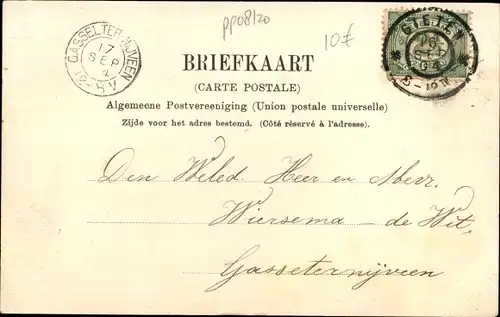 pp08/20
10€
GASSELTER-NIJVEEN
17
SEP
4
12-8V
GIETEN
SEP
04
8-12N
BRIEFKAART
(CARTE POSTALE)
Algemeene Postvereeniging (Union postale universelle)
Zijde voor het adres bestemd. (Côté réservé à l'adresse).
Den Weled. Heer en Mevr.
Wiersema - de Wit,
Gasseternijveen